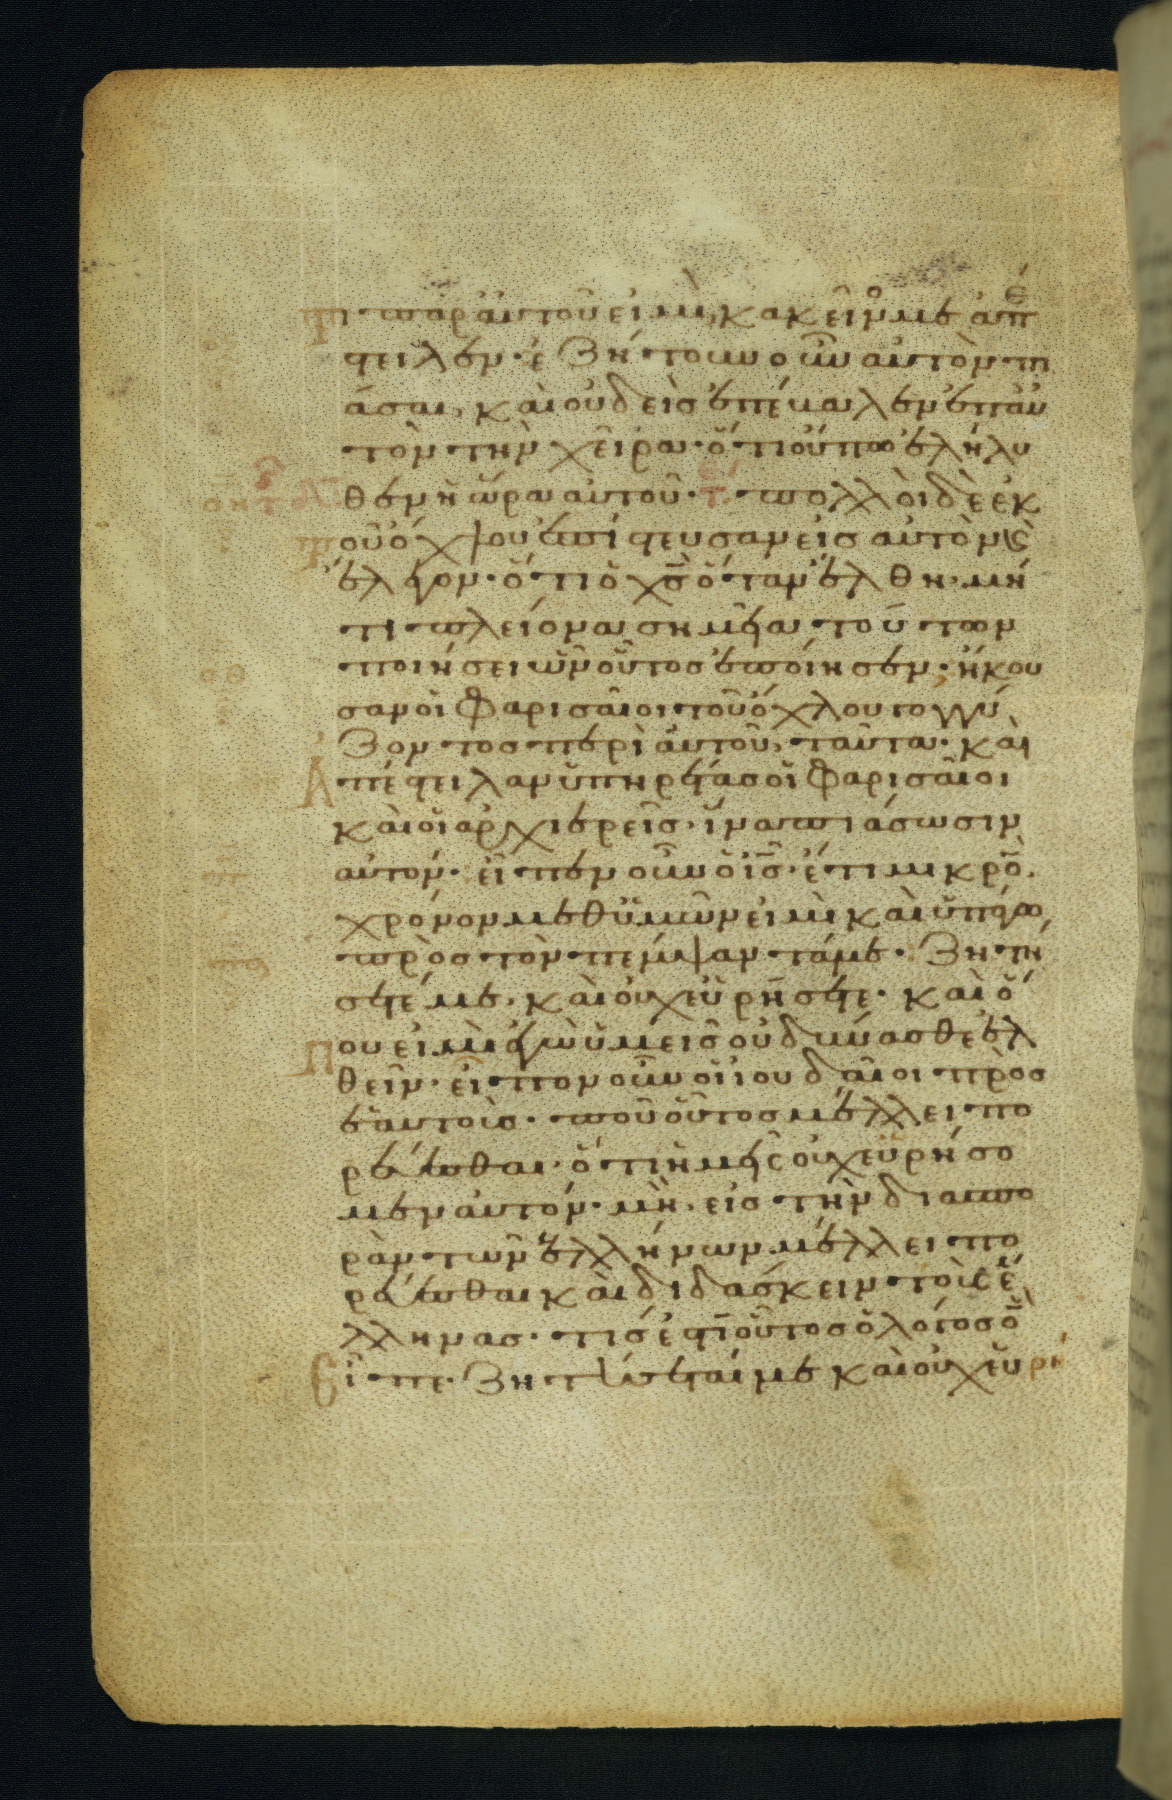 τι παρ αυτοῦ εἰμὶ, κακεῖνός με ἀπέ
στειλεν· ἐζήτουν οὖν αὐτὸν πι
άσαι, καὶ οὐδεὶς ἐπέβαλεν ἐπ αὐ
τὸν τὴν χεῖρα· ὅτι οὔπω ἐλήλυ
θεν ἡ ὥρα αὐτοῦ· πολλοὶ δὲ ἐκ
τοῦ ὄχλου ἐπίστευσαν εἰς αὐτὸν καὶ
ἔλεγον· ὅτι ὁ χς ὅταν ἔλθη· μή
τι πλείονα σημεῖα τούτων
ποιήσει ὧν οὗτος ἐποίησεν; ἤκου
σαν οἱ Φαρισαῖοι τοῦ ὄχλου γογγύ
ζοντος περὶ αὐτοῦ, ταῦτα· καὶ
Ἀπέστειλαν ὑπηρέτας οἱ Φαρισαῖοι
καὶ οἱ ἀρχιερεῖς· ἵνα πιάσωσιν
αὐτόν· εἶπεν οὖν ὁ ις· ἔτι μικρὸν
χρόνον μεθ ὑμῶν εἰμὶ καὶ ὑπάγω
πρὸς τὸν πέμψαντά με· ζητή
σετέ με, καὶ οὐχ εὑρήσετε· καὶ ὅ
που εἰμὶ ἐγὼ ὑμεῖς οὐ δύνασθε ἐλ
θεῖν· εἶπον οὖν οἱ ἰουδαῖοι πρὸς
ἑαυτούς· ποῦ οὗτος μέλλει πο
ρεύεσθαι· ὅτι ἡμεῖς οὐχ εὑρήσο
μεν αὐτόν· μὴ εἰς τὴν διασπο
ρὰν τῶν ἑλλήνων μέλλει πο
ρεύεσθαι καὶ διδάσκειν τοὺς ἕ
λληνας· τίς ἐστιν οὗτος ὁ λόγος ὃν
Εἶπε· ζητήσετέ με καὶ οὐχ εὑρή